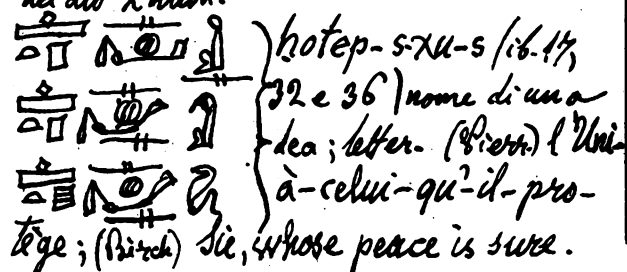 hotep-s-χu-s (ib. 17,
32 e 36) nome di una
dea; letter. (Pierr.) l'Uni-
à-celui-qu'-il-pro-
tège; (Birch) Sie, whose peace is sure.